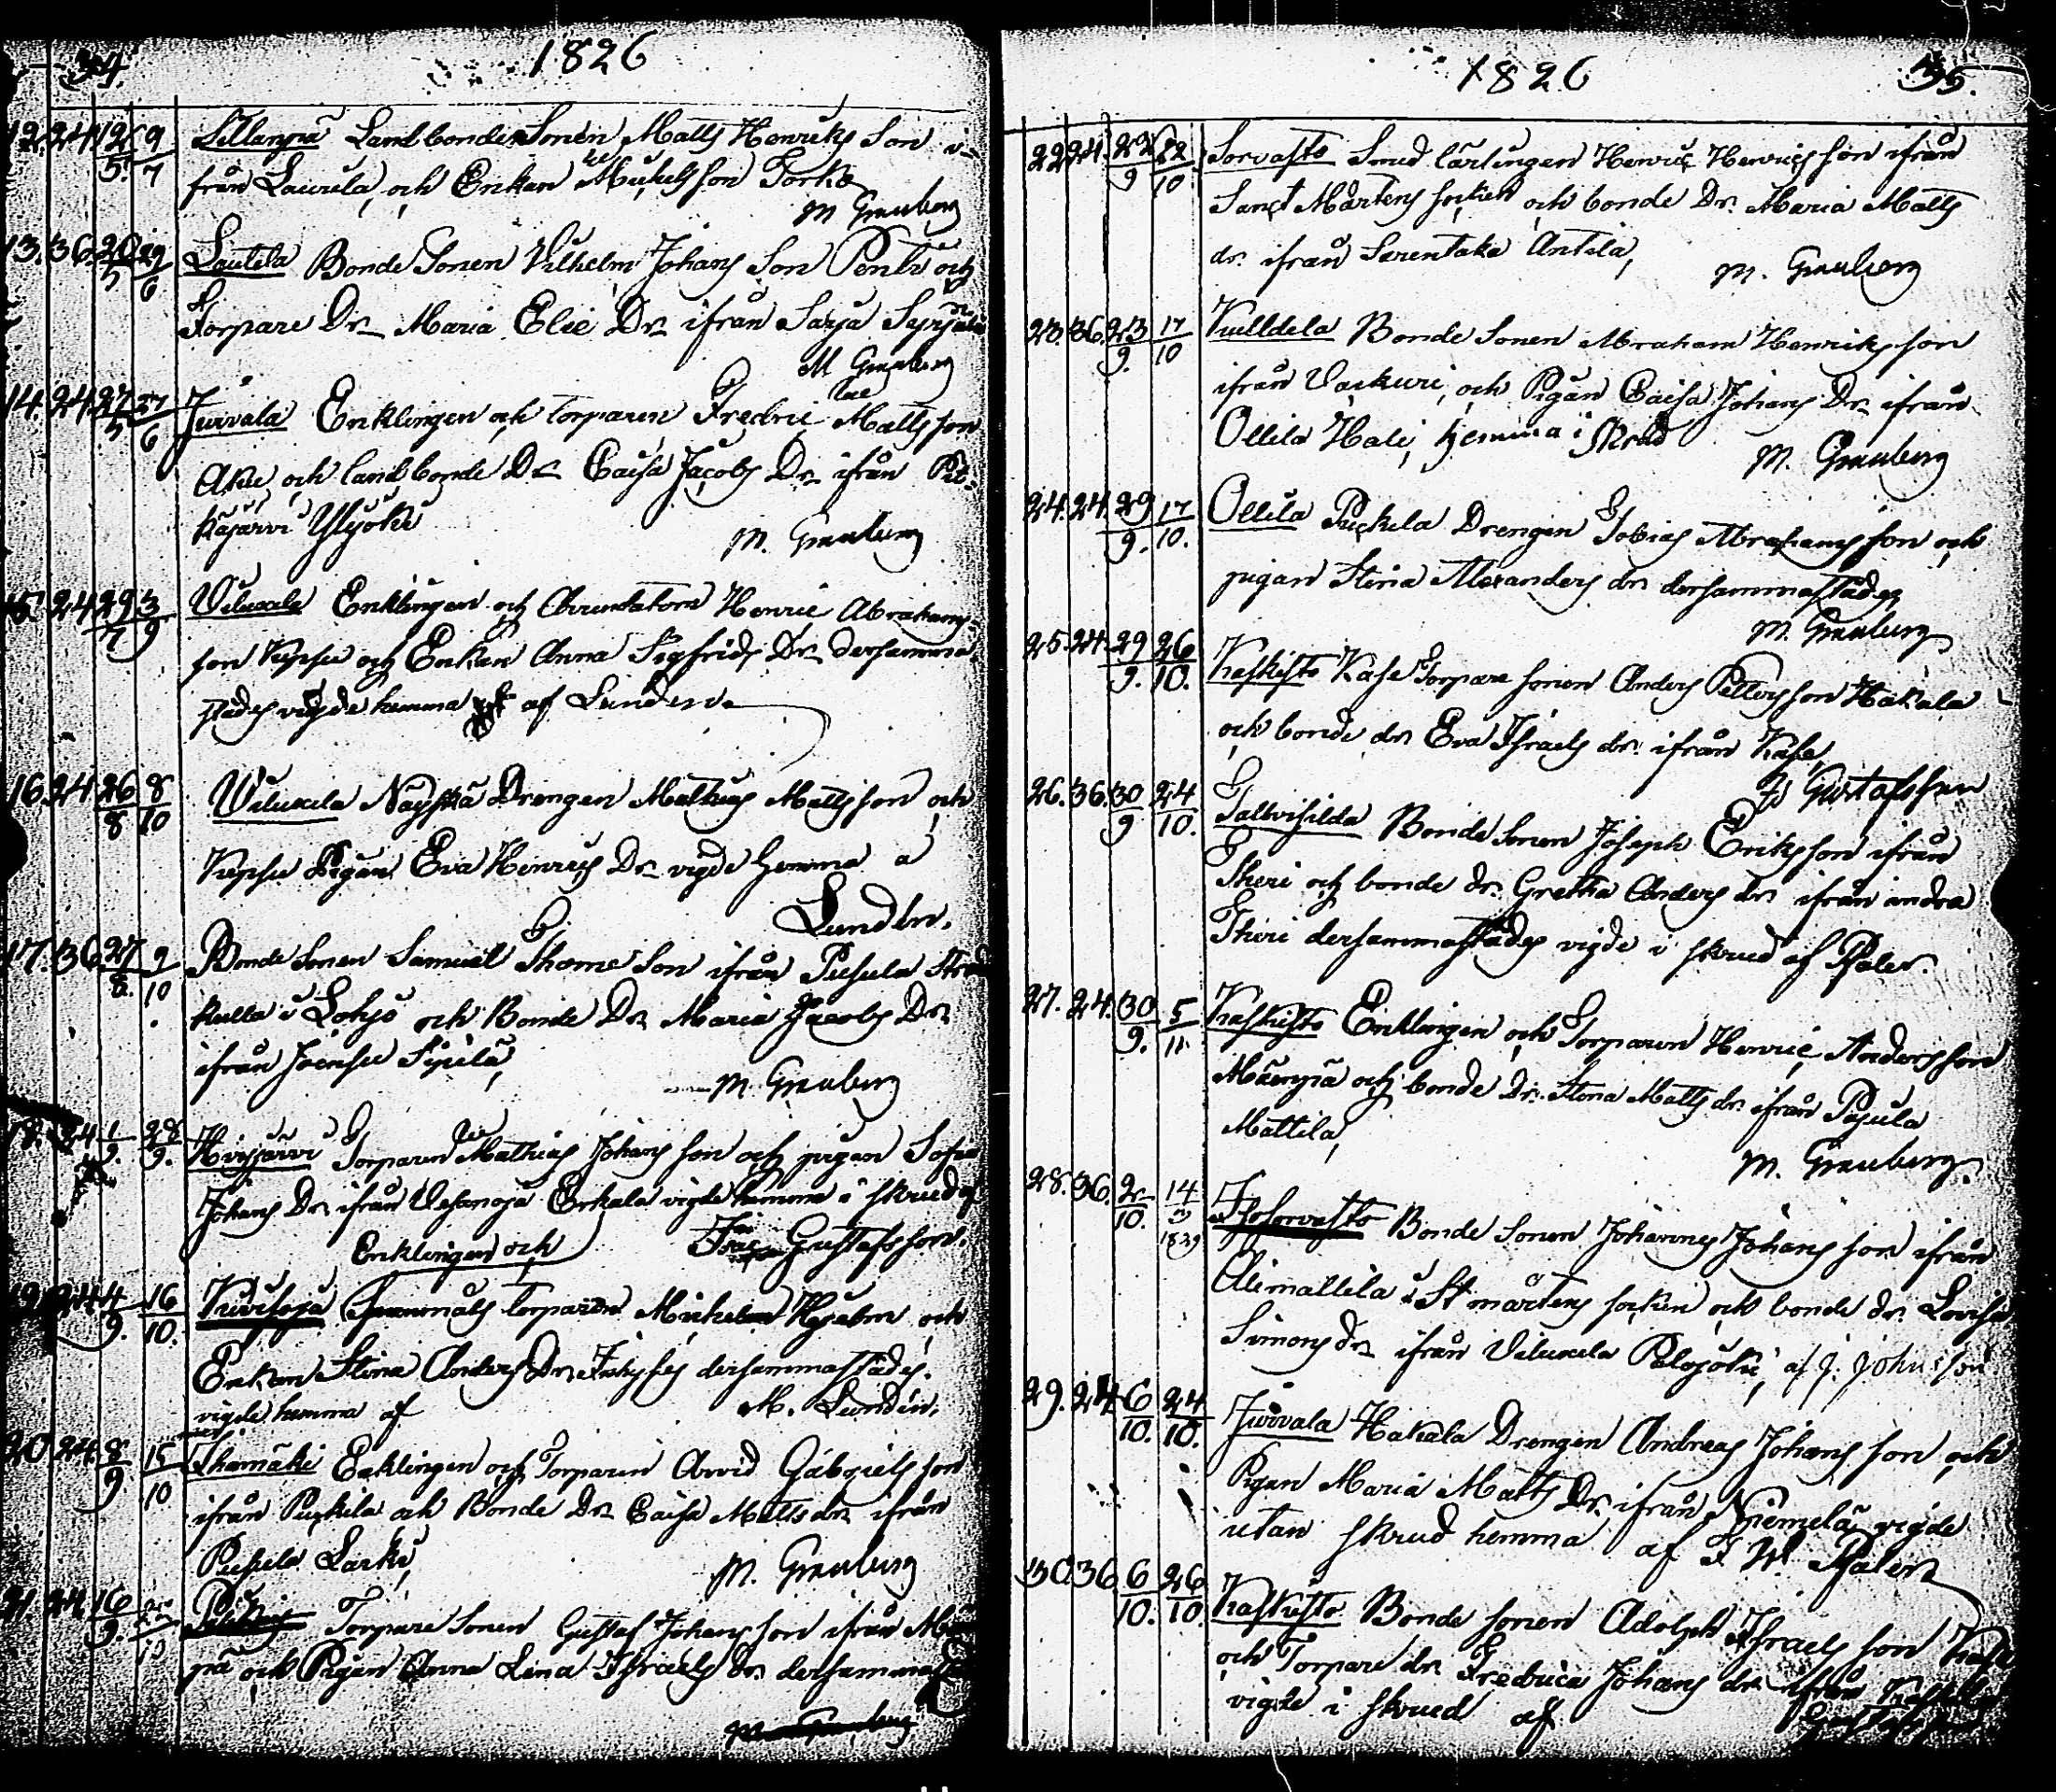 34.
1826
12. 24 12/5. 9/7 Lillanpä Landbonde Sonen Matts Henriks Son i-
från Laurila, och Enkan Mickels son Torko
M Granberg
13. 36. 20/5 29/6 Lautela Bonde Sonen Vilhelm Johans Son Pentti och
Torpare Dr. Maria Elie Dr. ifrån Sarja
M Granberg
14. 24. 27/5 27/6 Juvvala Enklingen och torparen Fredric Matts son
och landbonde Dr. Caisa Jacobs Dr. ifrån Pit-
käjärvi Ylijoki
M. Granberg
15. 24 29/7 3/9 Viluxela Enklingen och Arrendatorn Henric Abrahams
son Kepsu och Enkan Anna Sigfrids Dr. dersamma
städes vigde hemma af Lunden.
16. 24 26/8 8/10 Viluxela Nayskä Drengen Mathias Matts son och
Kepsu Pigan Eva Henrics Dr. vigde hemma a
Lundin.
17. 36 27/8. 9/10 Bonde Sonen Samuel Thome Son ifrån Pusula
kulla i Lohjo och Bonde Dr. Maria Jacobs Dr.
ifrån Joensu Sipilä,
M. Granberg
18. 24 1/9. 28/9. Hirvjärvi Torparen Mathias Johans son och pigan Sofia
Johans Dr. ifrån Vesanoja Erkala vigde hemma i skrud af
Enklingen och Isac Gustafsson.
19 24 4/9. 16/10. Kuvisoja torparen Michel Hjelm och
Enkan Stina Anders Dr. dersammastädes.
vigde hemma af M. Lundin.
20 24. 8/9 15/10 Ihamäki Enklingen och Torparen Arvid Gabriels son
ifrån Puckila och Bonde Dr. Caisa Matts dr. ifrån
Pusula Larki,
M. Granberg
21 24 16/9. Torpare Sonen Gustaf Johans son ifrån
pä och Pigan Anna Lena Israels Dr. dersamma
M. Granberg
1826
35.
22 24. 22/9 22/10 Sorvasto Smed lärlingen Henric Henrics son ifrån
Sanct Mårtens socken och bonde Dr. Maria Matts
dr. ifrån Sarentaka Antila,
M. Granberg
23. 36. 23/9. 17/10 Kulldela Bonde Sonen Abraham Henriks son
ifrån Vaskuri, och Pigan Caisa Johans Dr. ifrån
Ollila Hali, hemma i Skrud
M. Granberg
24. 24. 29/9. 17/10. Ollila Puckila Drengen Tobias Abrahams son och
pigan Stina Alexanders dr. dersammastädes
M. Granberg
25. 24. 29/9. 26/10. Kaskisto Kase Torpare sonen Anders Petters son Hakala
och bonde dr. Eva Israels dr. ifrån Kase,
Is Gustafsson
26. 36. 30/9 24/10. Talvisilda Bonde Sonen Joseph Eriks son ifrån
Theri och bonde dr. Gretha Anders dr. ifrån andra
Theri dersammastädes vigde i skrud af Paler.
27. 24. 30/9. 5/11. Kaskisto Enklingen och Torparen Henric Anders son
Mäenpä och bonde Dr. Stina Matts dr. ifrån Pusula
Mattila,
M. Granberg.
28. 36. 2/10. 14/3 1829 Isosorvasto Bonde Sonen Johannes Johans son ifrån
Alimattila i St mårtens socken och bonde dr. Lovisa
Simons dr. ifrån Viluxela Palojoki, af J. Johnsson
29. 24 6/10. 24/10. Juvvala Hakala Drengen Andreas Johans son och
Pigan Maria Matts Dr. ifrån Niemelä vigde
utan skrud hemma af F. W. Paler
30. 36 6/10. 26/10 Kaskisto Bonde sonen Adolph Israels son Kase
och Torpare dr. Fredrica Johans dr. ifrån
vigde i skrud af